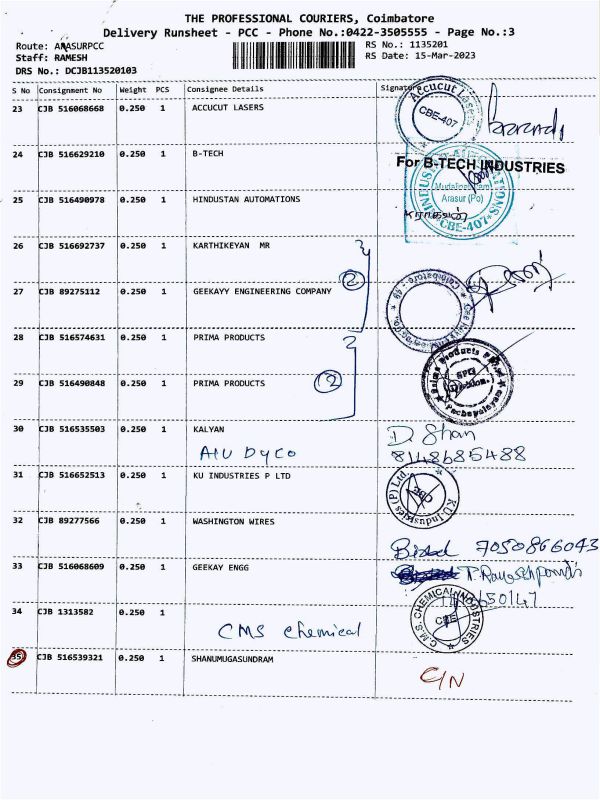 THE PROFESSIONAL COURIERS, Coimbatore
Delivery Runsheet - PCC - Phone No.:0422-3505555 - Page No.:3
Route: ARASURPCC
RS No.: 1135201
Staff: RAMESH
RS Date: 15-Mar-2023
DRS No.: DCJB113520103
S No Consignment No Weight PCS Consignee Details Signature
23 CJB 516068668 0.250 1 ACCUCUT LASERS
Accucut Lasers
CBE-407
24 CJB 516629210 0.250 1 B-TECH
For B-TECH INDUSTRIES
25 CJB 516490978 0.250 1 HINDUSTAN AUTOMATIONS
Arasur (Po)
CBE-407
26 CJB 516692737 0.250 1 KARTHIKEYAN MR
2
27 CJB 89275112 0.250 1 GEEKAYY ENGINEERING COMPANY
Coimbatore - 49
28 CJB 516574631 0.250 1 PRIMA PRODUCTS
29 CJB 516490848 0.250 1 PRIMA PRODUCTS
2
Prima Products
SPG
Division
30 CJB 516535503 0.250 1 KALYAN
D. Shan
8148685488
31 CJB 516652513 0.250 1 KU INDUSTRIES P LTD
K U Industries (P) Ltd.
CBE
32 CJB 89277566 0.250 1 WASHINGTON WIRES
7050866043
33 CJB 516068609 0.250 1 GEEKAY ENGG
34 CJB 1313582 0.250 1
CMS Chemical
C.M.S. CHEMICAL INDUSTRIES
CBE
35 CJB 516539321 0.250 1 SHANUMUGASUNDRAM
C/N